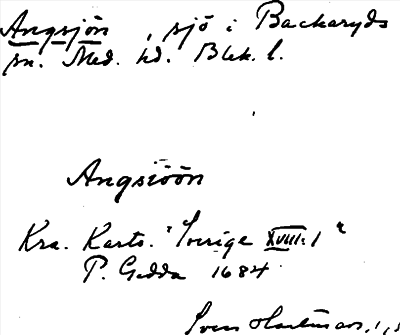 Angsjön, sjö i Backaryds
sn. Med. hd. Blek. l.
Angsiöön
Kra. Karto. "Sverige XVIII:1"
P. Gedda 1684
Sven